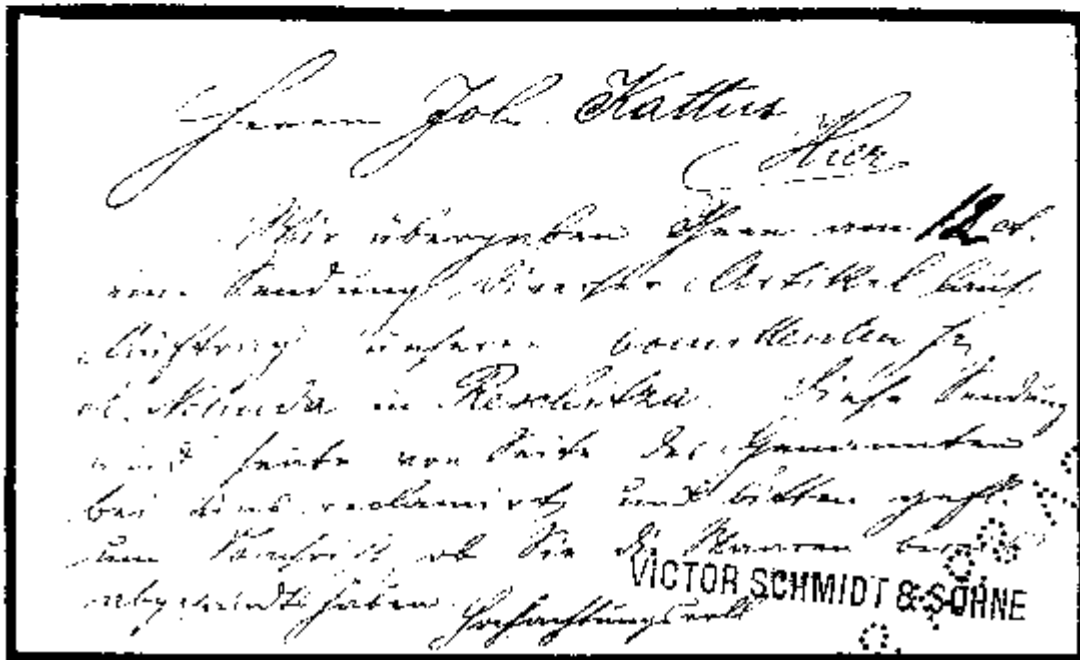 Herrn Joh. Kattus
Hier
Wir übergaben Ihnen vom 12 d.
eine Sendung diverser Artikel laut
Auftrag unseres Committenten H.
in Reschitza. Diese Sendung
wird heute von Seite des Genannten
bei uns reclamirt und bitten gefl.
um Nachricht ob Sie die Waaren bereits
abgesandt haben.
Hochachtungsvoll
VICTOR SCHMIDT & SÖHNE